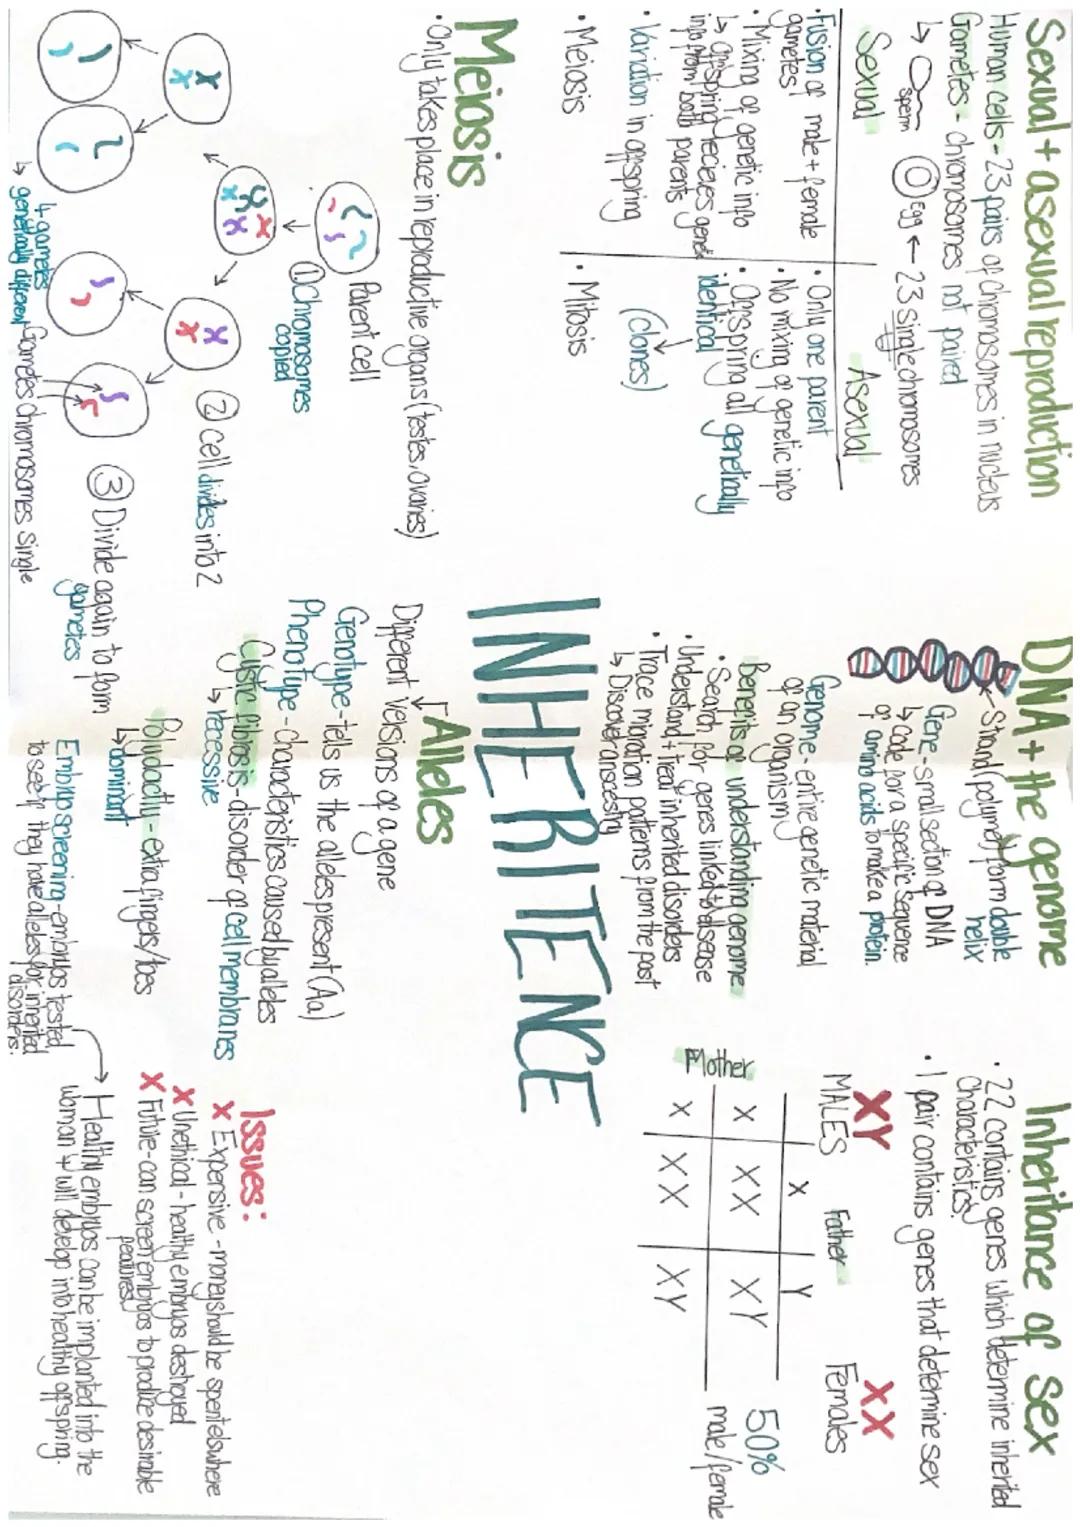 Sexual + asexual reproduction
Human cells - 23 pairs of chromosomes in nucleus
Gametes - chromosomes not paired
↳ sperm Egg ← 23 single chromosomes
Sexual
Asexual
• Fusion of male + female
gametes
• Mixing of genetic info
↳ offspring recieves genetic
info from both parents
• Variation in offspring
• Meiosis
• Only one parent
• No mixing of genetic info
• Offspring all genetically
identical
(clones)
• Mitosis
Meiosis
• Only takes place in reproductive organs (testes, ovaries)
Parent cell
① Chromosomes
copied
② cell divides into 2
③ Divide again to form
gametes
4 gametes
↳ genetically different
Gametes chromosomes single
DNA + the genome
Strand (polymer) form double
helix
Gene - small section of DNA
↳ code for a specific sequence
of amino acids to make a protein.
Genome - entire genetic material
of an organism
Benefits of understanding genome
• Search for genes linked to disease
• Understand + treat inherited disorders
• Trace migration patterns from the past
↳ Discover ancestry
INHERITENCE
Alleles
Different versions of a gene
Genotype - tells us the alleles present (Aa)
Phenotype - characteristics caused by alleles
Cystic fibrosis - disorder of cell membranes
↳ recessive
Polydactly - extra fingers/toes
↳ dominant
Embryo screening - embryos tested
to see if they have alleles for inherited
disorders.
Inheritance of sex
• 22 contains genes which determine inherited
characteristics.
• 1 pair contains genes that determine sex
XY XX
MALES Females
Father
Mother
X Y
X XX XY
X XX XY
50%
male/female
Issues:
X Expensive - money should be spent elswhere
X Unethical - healthy embryos destroyed
X Future - can screen embryos to produce desirable
features
→ Healthy embryos can be implanted into the
woman + will develop into healthy offspring.